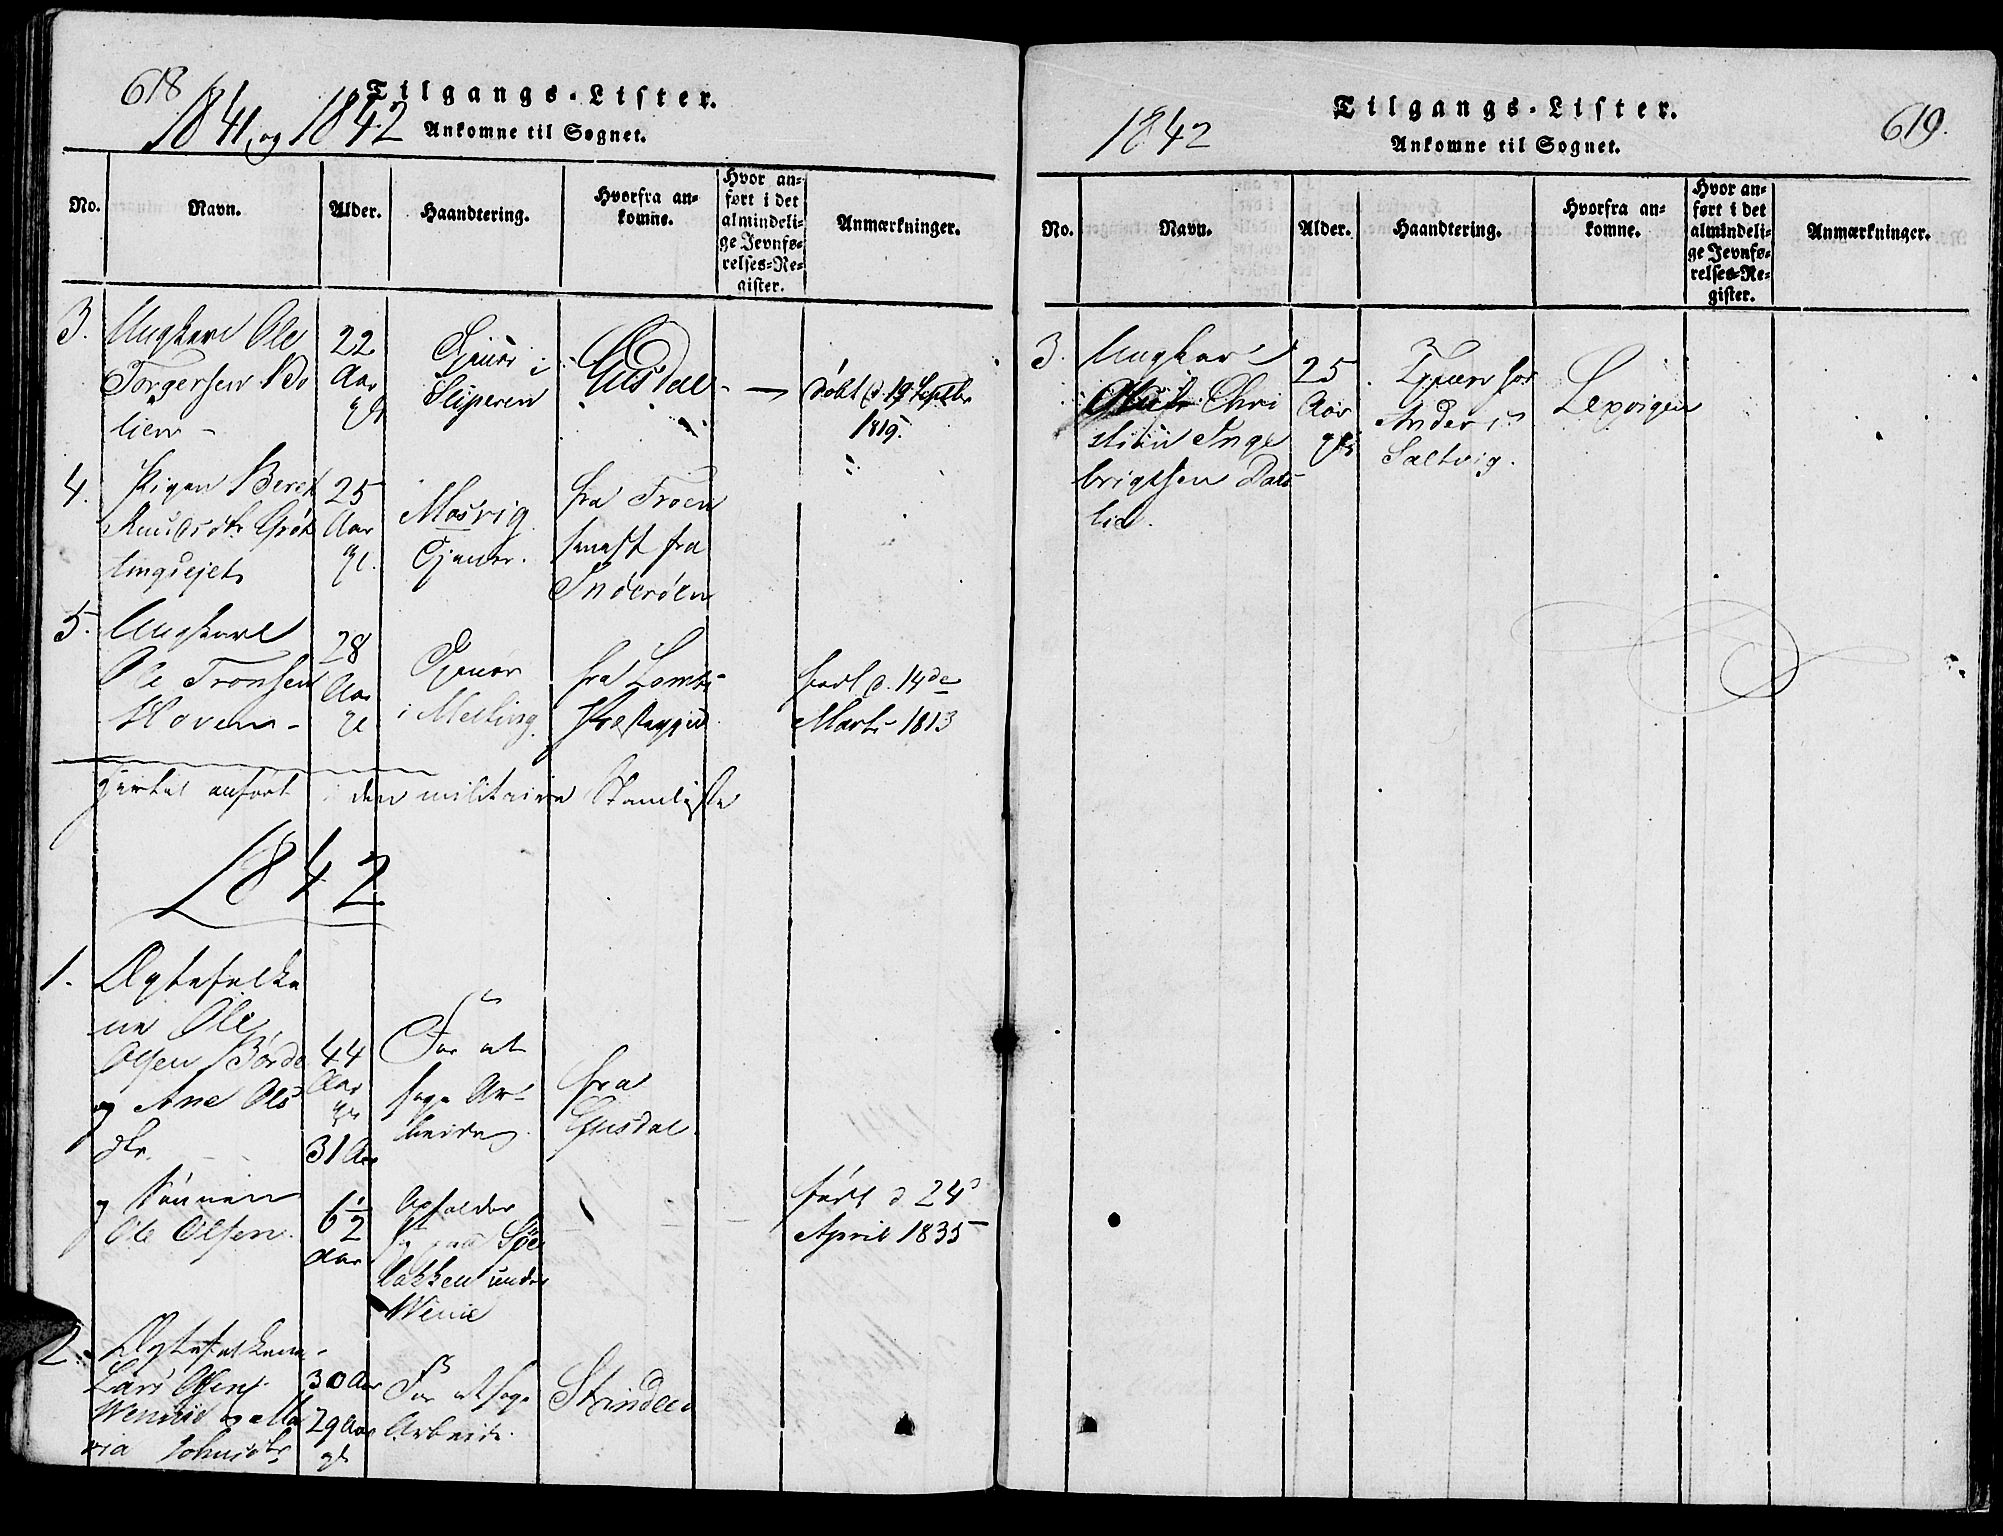 618
Tilgangs-Lister.
1841, og 1842
Ankomne til Sognet.
No. Navn. Alder. Haandtering. Hvorfra ankomne. Hvor anført i det almindelige Jevnførelses-Register. Anmærkninger.
3. Ungkarl Ole
Torgersen Bø
lien -
22
Aar
gl
Tjener i
Sliperen
Gusdal -
døbt d 19 Septbr
1819.
4. Pigen Beret
Knudsdtr Grøt
tingsejet
25
Aar
gl.
Mosvig
Tjener.
fra Froen
senest fra
Inderöen
5. Ungkarl
Ole Tronsen
Hoven -
28
Aar
gl
Tjener
i Melting.
fra Lomb
Præstegjeld.
født d. 14de
Marts 1813
anført i den militaire Stamliste
1842
1. Ægtefolke
ne Ole
Olsen Børdo
og Ane Ols
dtr.
44
Aar
gl
31 Aar
For at
søge Ar-
beide
fra
Gusdal.
og Sönnen
Ole Olsen.
6½
Aar
Opholder
sig paa
bakken under
Wenie
født d 24d
April 1835
2. Ægtefolkene
Lars Olsen
Wennie og Ma
ria Johnsdtr
30 Aar
29 Aar
gl
For at søge
Arbeide.
Strinden
1842
Tilgangs-Lister.
Ankomne til Sognet.
619.
No. Navn. Alder. Haandtering. Hvorfra ankomne. Hvor anført i det almindelige Jevnførelses-Register. Anmærkninger.
3. Ungkarl
Chri
stian Inge
brigtsen Dals
lie.
25
Aar
gl
Tjener hos
Anders
Saltvig.
Lexvigen